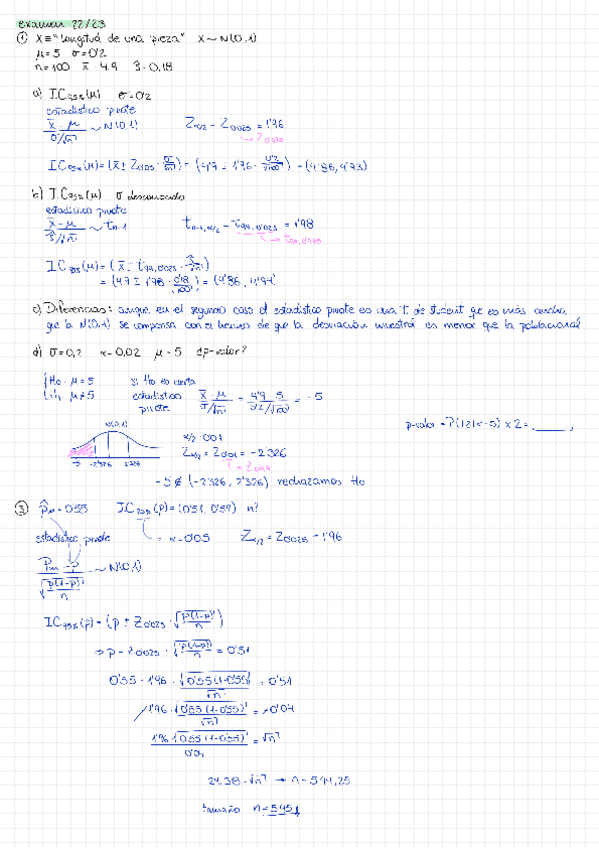 examen 22/23
① X≡"Longitud de una pieza" X∼N(0,1)
μ=5 σ=0'2
n=100 x̄ = 4.9 ŝ = 0,18
a) IC95%(μ) σ=0'2
estadístico pivote
x̄ - μ / σ/√n ∼ N(0,1) Zα/2 = Z0'025 = 1'96
→ Z0'975
IC95%(μ) = (x̄ ± Z0'025 · σ/√n) = (4'9 ± 1'96 · 0'2/√100) = (4'86, 4'93)
b) IC95%(μ) σ desconocida
estadístico pivote
x̄ - μ / ŝ/√n ∼ tn-1 tn-1, α/2 = t99, 0'025 = 1'98
→ t99, 0'975
IC95(μ) = (x̄ ± t99, 0'025 · ŝ/√n)
= (4'9 ± 1'98 · 0'18/√100) = (4'86, 4'94)
c) Diferencias: aunque en el segundo caso el estadístico pivote es una t de student que es más ancha
que la N(0,1) se compensa con el hecho de que la desviación muestral es menor que la poblacional
d) σ=0,2 α=0,02 μ=5 ¿p-valor?
H0: μ=5 si H0 es cierta
H1: μ≠5 estadístico pivote x̄ - μ / σ/√n = 4'9 - 5 / 0'2/√100 = -5
p-valor = P(|Z|<-5) x 2 =
N(0,1)
α/2 = 0'01
Zα/2 = Z0'01 = -2'326
→ Z0'99
-5 -2'326 2'326
-5 ∉ (-2'326, 2'326) rechazamos H0
③ p̂n = 0'55 IC95%(p) = (0'51, 0'59) n?
estadístico pivote = α=0'05 Zα/2 = Z0'025 = 1'96
p̂n - p / √p(1-p)/n ∼ N(0,1)
IC95%(p) = (p ± Z0'025 · √p(1-p)/n)
⇒ p - Z0'025 · √p(1-p)/n = 0'51
0'55 - 1'96 · √0'55(1-0'55) / √n = 0'51
1'96 · √0'55(1-0'55) / √n = 0'04
1'96 √0'55(1-0'55) / 0'04 = √n
24,38 = √n → n = 594,25
tamaño n = 595